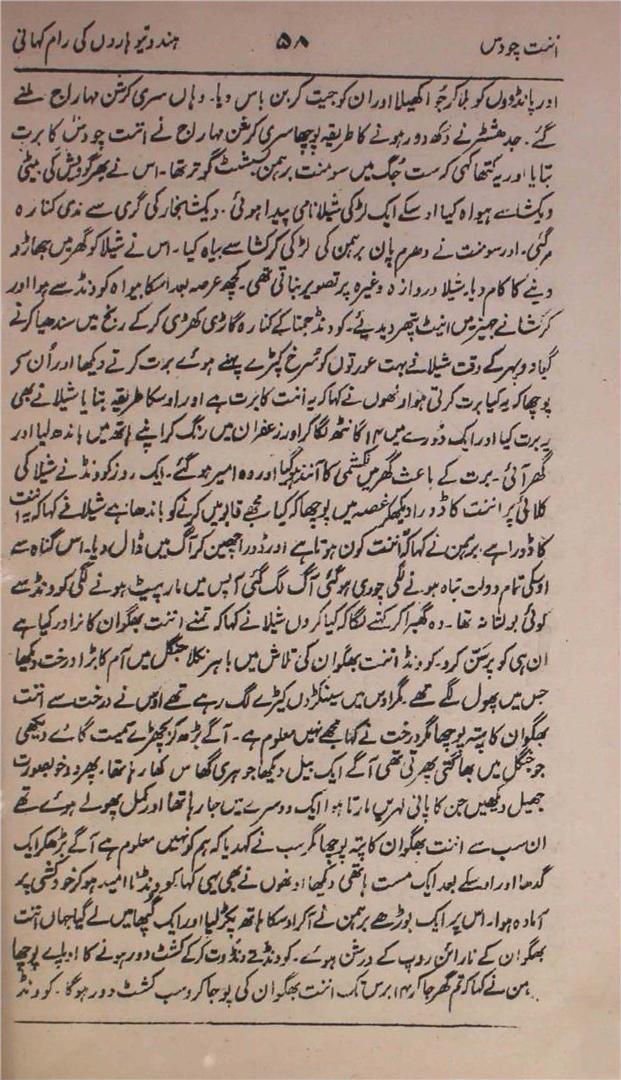 اننت چودس ۵۸ ہندو تیوہاروں کی رام کہانی
اور پانڈووں کو بلا کر جُوا کھیلا اور ان کو جیت کر بن باس دیا۔ وہاں سری کرشن مہاراج ملنے
گئے۔ جدھشٹر نے دکھ دور ہونے کا طریقہ پوچھا سری کرشن مہاراج نے اننت چودس کا برت
بتایا اور یہ کتھا کہی کہ ست جُگ میں سومنت برہمن بسشٹ گوتر تھا۔ اس نے بھرگو رِشی کی بیٹی
ویکشا سے بیواہ کیا اوسکے ایک لڑکی شیلا نامی پیدا ہوئی۔ دیکشا بخار کی گرمی سے ندی کنارہ
مرگئی۔ اور سومنت نے دھرم پان برہمن کی لڑکی کرکشا سے بیاہ کیا۔ اس نے شیلا کو گھر میں جھاڑو
دینے کا کام دیا۔ شیلا دروازہ وغیرہ پر تصویر بناتی تھی۔ کچھ عرصہ بعد اسکا بیواہ کونڈ سے ہوا اور
کرکشا نے جہیز میں اینٹ پتھر دیدیے۔ کونڈ جمنا کے کنارہ گاڑی کھڑی کرکے رنج میں سندھیا کرنے
گیا دوپہر کے وقت شیلا نے بہت عورتوں کو سُرخ کپڑے پہنے ہوئے برت کرتے دیکھا اور اُن سے
پوچھا کہ یہ کیا برت کرتی ہو اونھوں نے کہا کہ یہ اننت کا برت ہے اور اوسکا طریقہ بتایا شیلا نے بھی
یہ برت کیا اور ایک ڈورے میں ۱۴ گانٹھ لگا کر اور زعفران میں رنگ کر اپنے ہاتھ میں باندھ لیا اور
گھر آئی۔ برت کے باعث گھر میں لکشمی کا آنند ہوگیا اور وہ امیر ہوگئے۔ ایک روز کونڈ نے شیلا کی
کلائی پر اننت کا ڈورا دیکھکر غصہ میں پوچھا کہ کیا مجھے قابو میں کرنے کو باندھا ہے شیلا نے کہا کہ یہ اننت
کا ڈورا ہے۔ برہمن نے کہا کہ اننت کون ہوتا ہے اور ڈورا چھین کر آگ میں ڈال دیا۔ اس گناہ سے
اوسکی تمام دولت تباہ ہونے لگی چوری ہوگئی آگ لگ گئی آپس میں مارپیٹ ہونے لگی کونڈ سے
کوئی بولتا نہ تھا۔ وہ گھبرا کر کہنے لگا کہ کیا کروں شیلا نے کہا کہ تمنے اننت بھگوان کا نرادر کیا ہے
ان ہی کو پرسن کرو۔ کونڈ اننت بھگوان کی تلاش میں باہر نکلا جنگل میں آم کا بڑا درخت دیکھا
جس میں پھول لگے تھے۔ مگر اوس میں سینکڑوں کیڑے لگ رہے تھے اوس نے درخت سے اننت
بھگوان کا پتہ پوچھا مگر درخت نے کہا مجھے نہیں معلوم ہے۔ آگے بڑھ کر بچھڑے سمیت گائے دیکھی
جو جنگل میں بھاگتی پھرتی تھی آگے ایک بیل دیکھا جو ہری گھاس کھا رہا تھا۔ پھر دو خوبصورت
جھیل دیکھیں جن کا پانی لہریں مارتا ہوا ایک دوسرے میں جا رہا تھا اور کمل پھولے ہوئے تھے
ان سب سے اننت بھگوان کا پتہ پوچھا مگر سب نے کہدیا کہ ہم کو نہیں معلوم ہے آگے بڑھکر ایک
گدھا اور اوسکے بعد ایک مست ہاتھی دیکھا اونھوں نے بھی یہی کہا۔ کونڈ نا امید ہوکر خودکشی پر
آمادہ ہوا۔ اس پر ایک بوڑھے برہمن نے آکر اوسکا ہاتھ پکڑ لیا اور ایک گپھا میں لے گیا جہاں اننت
بھگوان کے نارائن روپ کے درشن ہوئے۔ کونڈ نے ڈنڈوت کرکے کشٹ دور ہونے کا اوپائے پوچھا
ہمن نے کہا کہ تم گھر جا کر ۱۴ برس تک اننت بھگوان کی پوجا کرو سب کشٹ دور ہوگا۔ کونڈ